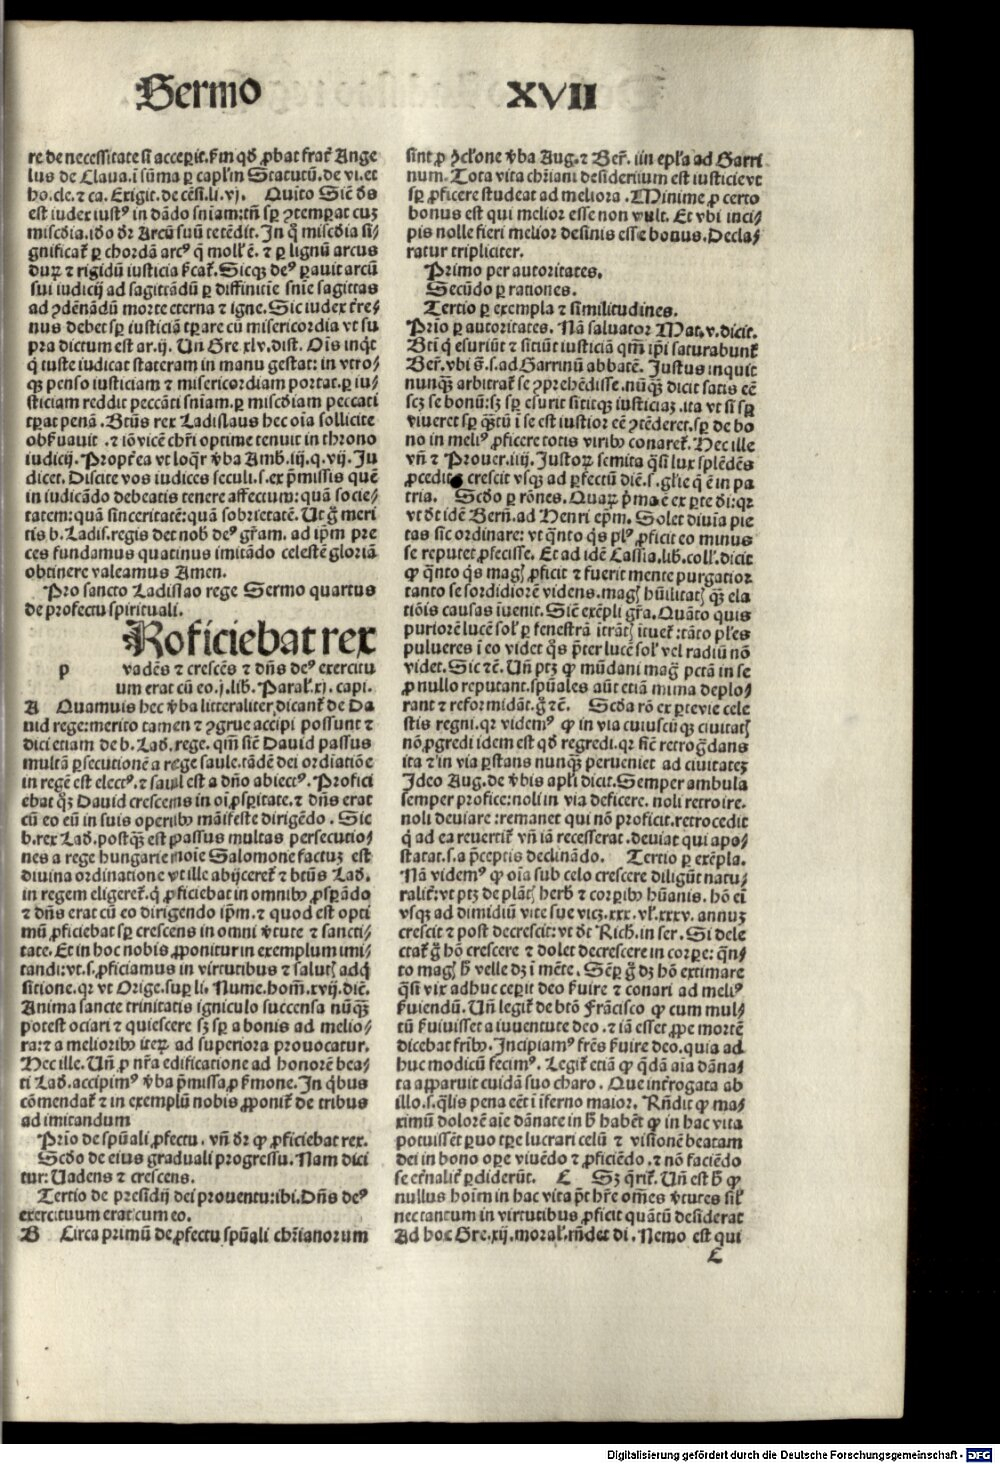 Sermo XVII
re de necessitate si acceꝑit. ẜm qđ ꝓbat frať Ange
lus de Claua. ĩ sũma ꝑ capl̃m Statutũ. de vi. et
ho. cle. ⁊ ca. Exigit. de cẽsi. li. vj. Quĩto Sic̃ ds
est iudex iustꝰ in dãdo sñiam: tñ sꝑ ꝯtemꝑat cuʒ
miscđia. iđo đr Arcũ suũ tetẽdit. In q̃ miscđia si⸗
gnificať ꝑ chordã arcꝰ q̃ moll' ẽ. ⁊ ꝑ lignũ arcus
duꝝ ⁊ rigidũ iusticia ẜcať. Sicqʒ deꝰ ꝑauit arcũ
sui iudicij ad sagittãdũ ꝑ diffinitiẽ sñie sagittas
ad ꝯdẽnãdũ morte eterna ⁊ igne. Sic iudex ťre⸗
nus debet sꝑ iusticiã tꝑare cũ misericordia vt su
pra dictum est ar. ij. Un̄ Gre xlv. dist. Oĩs inq̃t
q̃ iuste iudicat stateram in manu gestat: in vtro⸗
qʒ penso iusticiam ⁊ misericordiam portat. ꝑ iu⸗
sticiam reddit peccãti sñiam. ꝑ miscđiam peccati
tꝑat penã. Btũs rex Ladislaus hec oĩa sollicite
obẜuauit. ⁊ iõ vicẽ chr̃i optime tenuit in throno
iudicij. Propť ea vt loq̃r v̾ba Amb. iij. q. vij. Ju
dicet. Discite vos iudices seculi. s. ex p̃missis quẽ
in iudicãdo debeatis tenere affectum: quã socie⸗
tatem: quã sinceritatẽ: quã sobrietatẽ. Ut g̃ meri
tis b. Ladis. regis det nob̃ deꝰ gr̃am. ad ip̃m pre
ces fundamus quatinus imitãdo celestẽ gloriã
obtinere valeamus Amen.
Pro sancto Ladislao rege Sermo quartus
de profectu spirituali.
Roficiebat rex
p vadẽs ⁊ crescẽs ⁊ dñs deꝰ exercitu
um erat cũ eo. j. lib. Paral'. xj. capi.
A Quamuis hec v̾ba litteraliter dicanť de Da
uid rege: merito tamen ⁊ ꝯgrue accipi possunt ⁊
dici etiam de b. Lad. rege. qm̃ sic̃ Dauid passus
multã ꝑsecutionẽ a rege saule. tãdẽ dei ordiatiõe
in regẽ est electꝰ. ⁊ saul est a dño abiectꝰ. Profici
ebat q̃ʒ Dauid crescens in oĩ ꝓsꝑitate. ⁊ dñs erat
cũ eo eũ in suis operibꝰ mãifeste dirigẽdo. Sic
b. rex Lad. postq̃ʒ est ꝑpassus multas persecutio⸗
nes a rege hungarie noĩe Salomone factuʒ est
diuina ordinatione vt ille abijcereť ⁊ btũs Lad.
in regem eligereť. q̃ ꝓficiebat in omnibꝰ ꝓsꝑãdo
⁊ dñs erat cũ eo dirigendo ip̃m. ⁊ quod est opti
mũ ꝓficiebat sꝑ crescens in omni v̾tute ⁊ sancti⸗
tate. Et in hoc nobis ꝓponitur in exemplum imi⸗
tandi: vt. s. ꝓficiamus in virtutibus ⁊ salutꝭ adq̃
sitione. qr vt Orige. suꝑ li. Nume. hom̃. xvij. diẽ.
Anima sancte trinitatis igniculo succensa nũq̃ʒ
potest ociari ⁊ quiescere sʒ sꝑ a bonis ad melio⸗
ra: ⁊ a melioribꝰ iteꝝ ad superiora prouocatur.
Hec ille. Un̄ ꝓ nr̃a edificatione ad honorẽ bea⸗
ti Lad. accipimꝰ v̾ba p̃missa, ꝓ ẜmone. In q̃bus
cõmendať ⁊ in exemplũ nobis ꝓponiť de tribus
ad imitandum
Prĩo de spũali ꝓfectu. vñ đr ꝙ ꝓficiebat rex.
Scđo de eius graduali progressu. Nam dici
tur: Uadens ⁊ crescens.
Tertio de presidij dei prouentu: ibi. Dñs deꝰ
exercituum erat cum eo.
B Circa primũ de ꝓfectu spũali chr̃ianorum
sint ꝓ ꝯcl'one v̾ba Aug. ⁊ Beř. iin ep̃la ad Garri
num. Tota vita chr̃iani desiderium est iusticie vt
sꝑ ꝓficere studeat ad meliora. Minime ꝓ certo
bonus est qui melior esse non vult. Et vbi inci⸗
pis nolle fieri melior desinis esse bonus. Decla⸗
ratur tripliciter.
Primo per autoritates.
Secũdo ꝑ rationes.
Tertio ꝑ exempla ⁊ similitudines.
Prĩo ꝑ autoritates. Nã saluator Mat. v. dicit.
Bti q̃ esuriũt ⁊ sitiũt iusticiã qm̃ ip̃i saturabunť
Beř. vbi s̃. s. ad Garrinũ abbatẽ. Justus inquit
nunqʒ̃ arbitrať se ꝯprehẽdisse. nũqʒ̃ dicit satis eẽ
scʒ se bonũ: sʒ sꝑ esurit sititqʒ iusticiaʒ. ita vt si sꝑ
viueret sꝑ q̃ʒtũ ĩ se est iustior eẽ ꝯtẽderet. sꝑ de bo
no in meliꝰ ꝓficere totis viribꝰ conareť. Hec ille
vñ ⁊ Prouer. iiij. Justoꝝ semita q̃si lux splẽdẽs
ꝓcedit crescit vsqʒ ad ꝑfectũ diẽ. s. gl'ie q̃ ẽ in pa
tria. Scđo ꝑ rõnes. Quaꝝ p̃ma ẽ ex ꝑte đi: qr
vt đt idẽ Berñ. ad Henri ep̃m. Solet diuĩa pie
tas sic ordinare: vt q̃nto q̃s plꝰ ꝓficit eo minus
se reputet ꝓfecisse. Et ad idẽ Cassia. lib. coll'. dicit
ꝙ q̃nto q̃s magꝭ ꝓficit ⁊ fuerit mente purgatior
tanto se sordidiorẽ videns. magꝭ hũilitatꝭ q̃ʒ ela
tiõis causas ĩuenit. Sic̃ exẽpli gr̃a. Quãto quis
puriorẽ lucẽ sol' ꝑ fenestrã ĩtrãtꝭ ĩtueť: tãto pl'es
pulueres ĩ eo videt q̃ʒ p̃ter lucẽ sol' vel radiũ nõ
videt. Sic ⁊č. Un̄ ptʒ ꝙ mũdani mag̃ pctã in se
ꝓ nullo reputant. spũales aũt etiã mĩma deplo⸗
rant ⁊ reformidãt. g̃ ⁊č. Scđa rõ ex ꝑte vie cele
stis regni. qr videmꝰ ꝙ in via cuiuscũqʒ ciuitatꝭ
nõ ꝓgredi idem est qđ regredi. qr sic̃ retrogdans
ita ⁊ in via ꝑstans nunqʒ̃ perueniet ad ciuitateʒ
Ideo Aug. de v̾bis apl̃i dicit. Semper ambula
semper profice: noli in via deficere. noli retroire.
noli deuiare: remanet qui nõ proficit. retrocedit
q̃ ad ea reuertiť vñ iã recesserat. deuiat qui apo⸗
statat. s. a p̃ceptis declinãdo. Tertio ꝑ exẽpla.
Nã videmꝰ ꝙ oĩa sub celo crescere diligũt natu⸗
raliť: vt ptʒ de plãtꝭ herb̃ ⁊ corꝑibꝰ hũanis. hõ eĩ
vsqʒ ad dimidiũ vite sue vicʒ. xxx. vl'. xxxv. annuʒ
crescit ⁊ post decrescit: vt đt Rich. in ser. Si dele
ctať g̃ hõ crescere ⁊ dolet decrescere in corꝑe: q̃n⸗
to magꝭ h̃ velle dʒ ĩ mẽte. Sẽꝑ g̃ dʒ hõ extimare
q̃si vix adhuc ceꝑit deo ẜuire ⁊ conari ad meliꝰ
ẜuiendũ. Un̄ legiť de btõ Frãcisco ꝙ cum mul⸗
tũ ẜuiuisset a iuuentute deo. ⁊ iã esset ꝓpe mortẽ
dicebat fribꝰ. Incipiamꝰ frẽs ẜuire deo. quia ad
huc modicũ fecimꝰ. Legiť etiã ꝙ q̃dã aĩa dãna⸗
ta apparuit cuidã suo charo. Que inťrogata ab
illo. s. q̃lis pena eẽt ĩ ĩferno maior. Rñdit ꝙ ma⸗
ximũ dolorẽ aĩe dãnate in h̃ habẽt ꝙ in hac vita
potuissẽt ꝑuo tꝑe lucrari celũ ⁊ visionẽ beatam
dei in bono oꝑe viuẽdo ⁊ ꝓficiẽdo. ⁊ nõ faciẽdo
se eťnaliť ꝑdiderũt. C Sʒ q̃riť. Un̄ est h̃ ꝙ
nullus hoĩm in hac vita p̃t hr̃e om̃es v̾tutes sil'
nec tantum in virtutibus ꝓficit quãtũ desiderat
Ad hoc Gre. xij. moral'. rñdet di. Nemo est qui
C
Digitalisierung gefördert durch die Deutsche Forschungsgemeinschaft - DFG